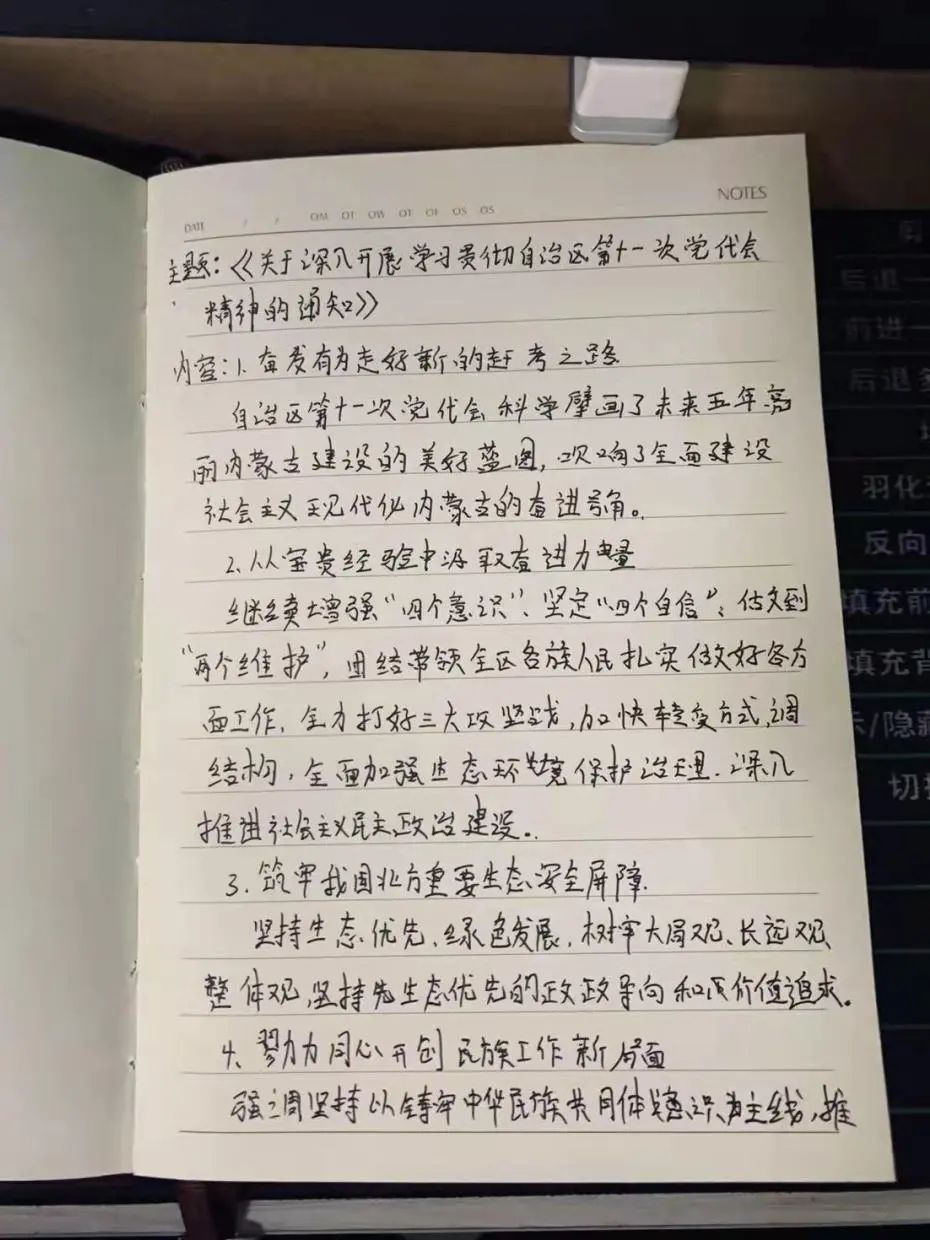 NOTES
DATE / / OM OT OW OT OF OS OS
主题:《关于深入开展学习贯彻自治区第十一次党代会
精神的通知》
内容:1.奋发有为走好新的赶考之路
自治区第十一次党代会科学擘画了未来五年亮
丽内蒙古建设的美好蓝图,吹响了全面建设
社会主义现代化内蒙古的奋进号角。
2.从宝贵经验中汲取奋进力量
继续增强“四个意识”、坚定“四个自信”、做到
“两个维护”,团结带领全区各族人民扎实做好各方
面工作,全力打好三大攻坚战,加快转变方式,调
结构,全面加强生态环境保护治理.深入
推进社会主义民主政治建设。
3.筑牢我国北方重要生态安全屏障.
坚持生态优先、绿色发展,树牢大局观、长远观、
整体观,坚持先生态优先的政政导向和价值追求。
4、勠力同心开创民族工作新局面
强调坚持以铸牢中华民族共同体意识为主线,推
剪
后退一
前进一
后退多
羽化
反向
填充前
填充背
示/隐藏
切换